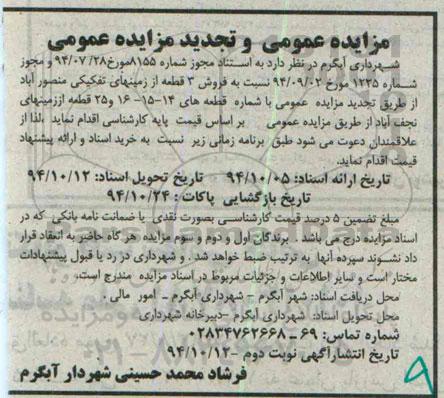 مزایده عمومی و تجدید مزایده عمومی
شهرداری آبگرم در نظر دارد به استناد مجوز شماره ۸۱۵۵مورخ۹۴/۰۷/۲۸ و مجوز
شماره ۱۲۲۵ مورخ ۹۴/۰۹/۰۲ نسبت به فروش ۳ قطعه از زمینهای تفکیکی منصور آباد
از طریق تجدید مزایده عمومی با شماره قطعه های ۱۴-۱۵- ۱۶ و۲۵ قطعه اززمینهای
نجف آباد از طریق مزایده عمومی بر اساس قیمت پایه کارشناسی اقدام نماید لذا از
علاقمندان دعوت می شود طبق برنامه زمانی زیر نسبت به خرید اسناد و ارائه پیشنهاد
قیمت اقدام نماید.
تاریخ ارائه اسناد: ۹۴/۱۰/۰۵ تاریخ تحویل اسناد: ۹۴/۱۰/۱۲
تاریخ بازگشایی پاکات : ۹۴/۱۰/۲۴
مبلغ تضمین ۵ درصد قیمت کارشناسی بصورت نقدی یا ضمانت نامه بانکی که در
اسناد مزایده درج می باشد . برندگان اول و دوم و سوم مزایده هر گاه حاضر به انعقاد قرار
داد نشوند سپرده آنها به ترتیب ضبط خواهد شد . و شهرداری در رد یا قبول پیشنهادات
مختار است و سایر اطلاعات و جزئیات مربوط در اسناد مزایده مندرج است.
محل دریافت اسناد: شهر آبگرم – شهرداری آبگرم – امور مالی .
محل تحویل اسناد: شهرداری آبگرم –دبیرخانه شهرداری
شماره تماس: ۶۹ – ۰۲۸۳۴۷۶۲۶۶۸
تاریخ انتشارآگهی نوبت دوم –۹۴/۱۰/۱۲
فرشاد محمد حسینی شهردار آبگرم
۹